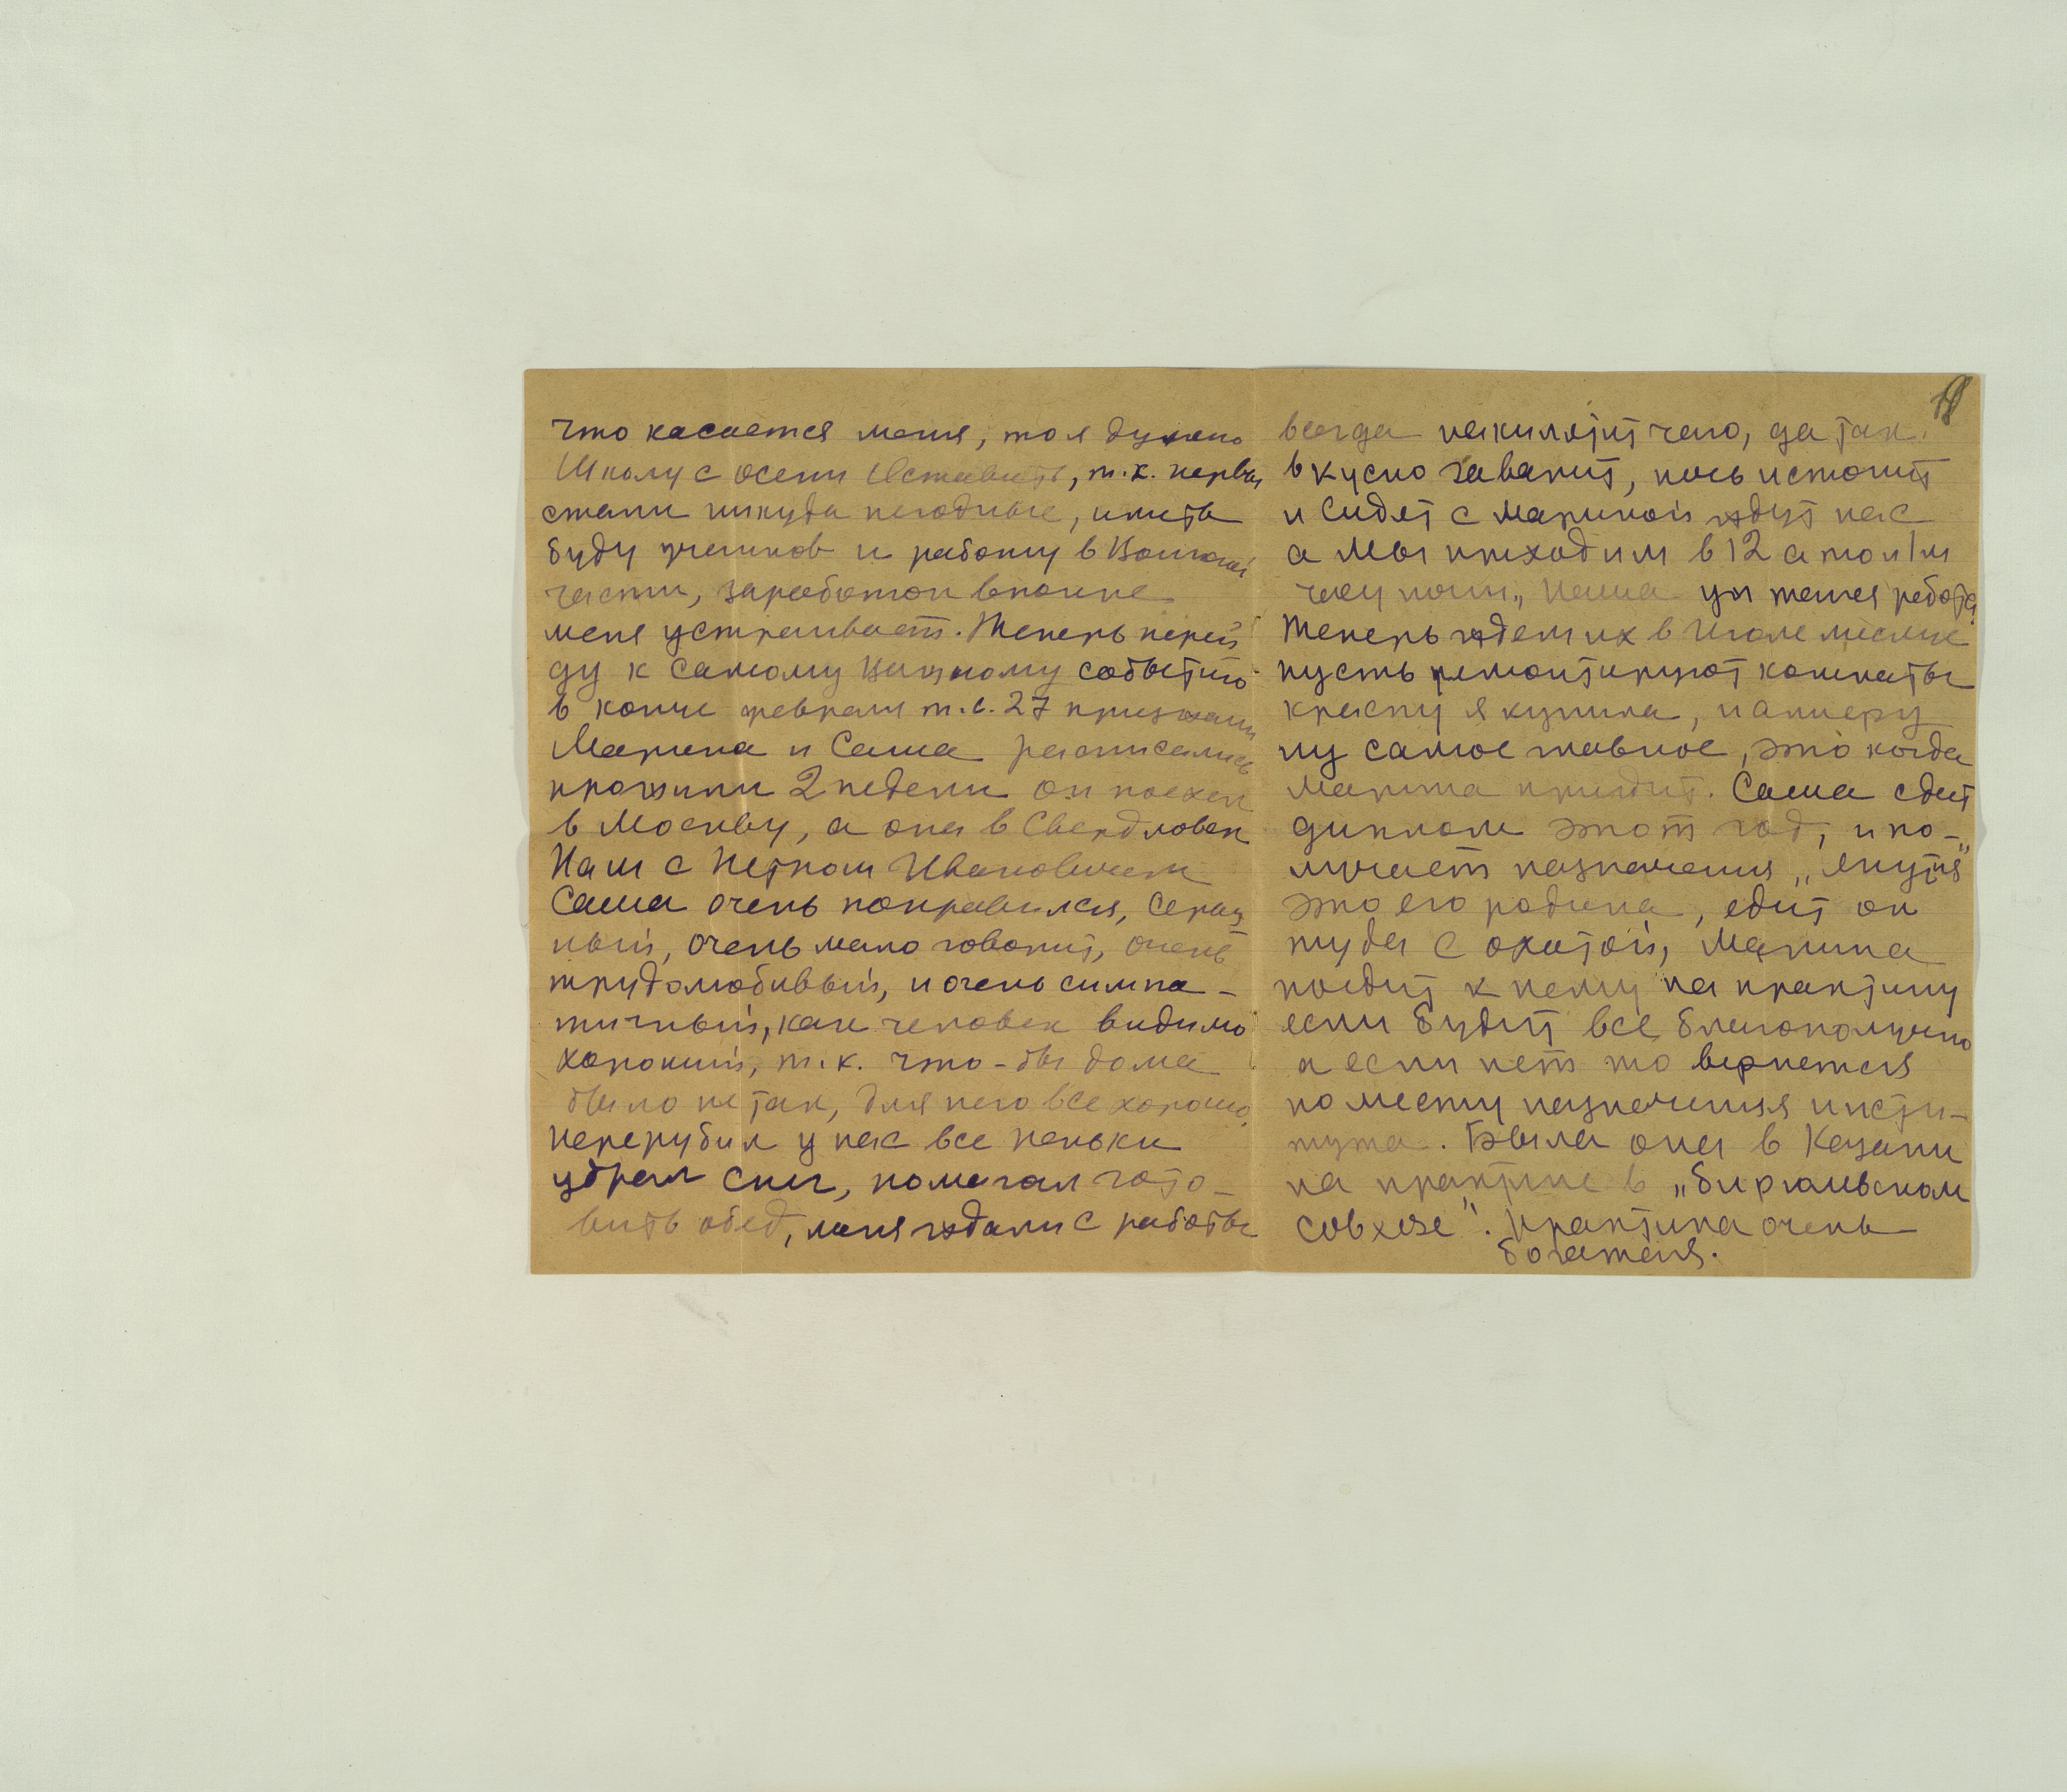 что касается меня, то я думаю
Школу с осени Оставить, т.к. нервы
стали никуда негодные, иметь
буду учеников и работу в Воинской
части, заработок вполне
меня устраивает. Теперь перей
ду к самому Важному событию
в конце февраля т.е. 27 приезжали
Марина и Саша расписались
прожили 2 недели он поехал
в Москву, а она в Свердловск
Нам с Петром Ивановичем
Саша очень понравился, Серьез
ный, очень мало говорит, очень
трудолюбивый, и очень симпа-
тичный, как человек видимо
хороший, т.к. что-бы дома
было не так, для него все хорошо,
перерубил у нас все пеньки
убрал снег, помогал гото-
вить обед, меня ждали с работы
всегда накипятит чаю, да так
вкусно заварит, печь истопит
и Сидят с Мариной ждут нас
а Мы приходим в 12 а то и 1 ч
часу ночи, наша уж такая работа
Теперь ждем их в Июле месяце
пусть ремонтируют комнаты
краску я купила, и фанеру
ну самое главное, это когда
Марина приедит. Саша сдает
диплом этот год, и по-
лучает назначения „Якутия"
это его родина, едит он
туда с охотой, Марина
поедит к нему на практику
если будит все благополучно
а если нет то вернется
по месту назначения инсти-
тута. Была она в Казани
на практике в „Бирюльском
совхозе". Практика очень
богатая.